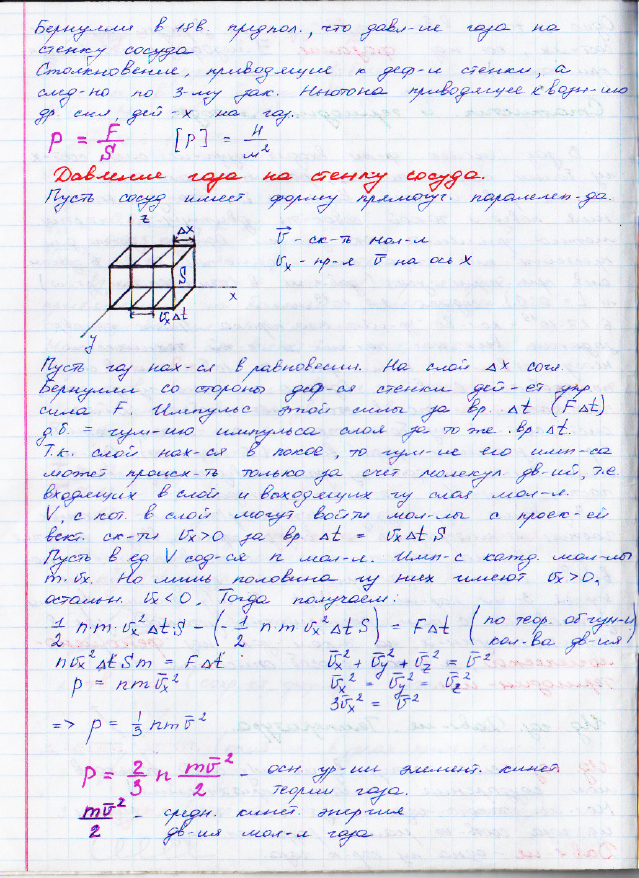 Бернулли в 18в. предпол., что давл-ие газа на
стенку сосуда
Столкновение, приводящие к деф-и стенки, а
след-но по 3-му зак. Ньютона приводящее к
др. сил, дей-х на газ.
P = F/S [P] = Н/м²
Давление газа на стенку сосуда.
Пусть сосуд имеет форму прямоуг. паралелеп-да.
z
Δx
v⃗ - ск-ть мол-л
S
vₓ - пр-я v⃗ на ось x
x
vₓΔt
y
Пусть газ нах-ся в равновесии. На слой Δx согл.
Бернулли со стороны деф-ся стенки дей-ет упр.
сила F. Импульс этой силы за вр. Δt (FΔt)
д.б. = изм-ию импульса слоя за то же вр. Δt.
Т.к. слой нах-ся в покое, то изм-ие его имп-са
может происх-ть только за счет молекул дв-ий, т.е.
входящих в слой и выходящих из слоя мол-л.
V, с кот. в слой могут войти мол-лы с проек-ей
вект. ск-ти vₓ>0 за вр Δt = vₓΔtS
Пусть в ед V сод-ся n мол-л. Имп-с кажд. мол-лы
m·vₓ. Но лишь половина из них имеют vₓ>0,
остальн. vₓ<0. Тогда получаем:
1/2 n·m·vₓ²Δt·S - (-1/2 n m vₓ²Δt S) = FΔt (по теор. об изм-и кол-ва дв-ия)
nvₓ²ΔtSm = FΔt v̄ₓ² + v̄y² + v̄z² = v̄²
p = nmv̄ₓ² v̄ₓ² = v̄y² = v̄z²
3v̄ₓ² = v̄²
=> p = 1/3 nmv̄²
P = 2/3 n mv̄²/2 - осн. ур-ии элемент. кинет.
теории газа.
mv̄²/2 - средн. кинет. энергия
дв-ия мол-л газа